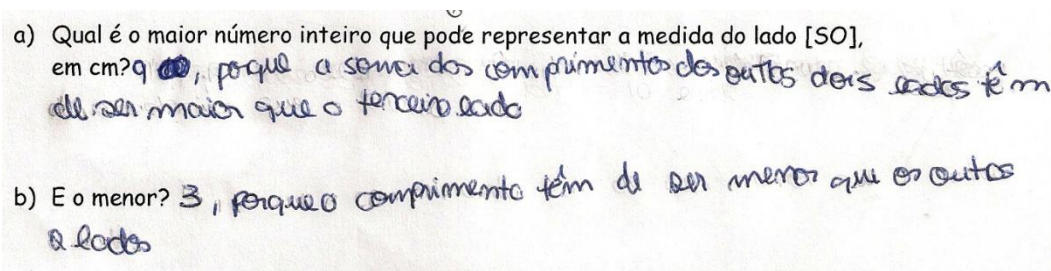 a) Qual é o maior número inteiro que pode representar a medida do lado [SO],
em cm? 9, porque a soma dos comprimentos dos outros dois lados têm
de ser maior que o terceiro lado
b) E o menor? 3, porque o comprimento têm de ser menor que os outros
2 lados